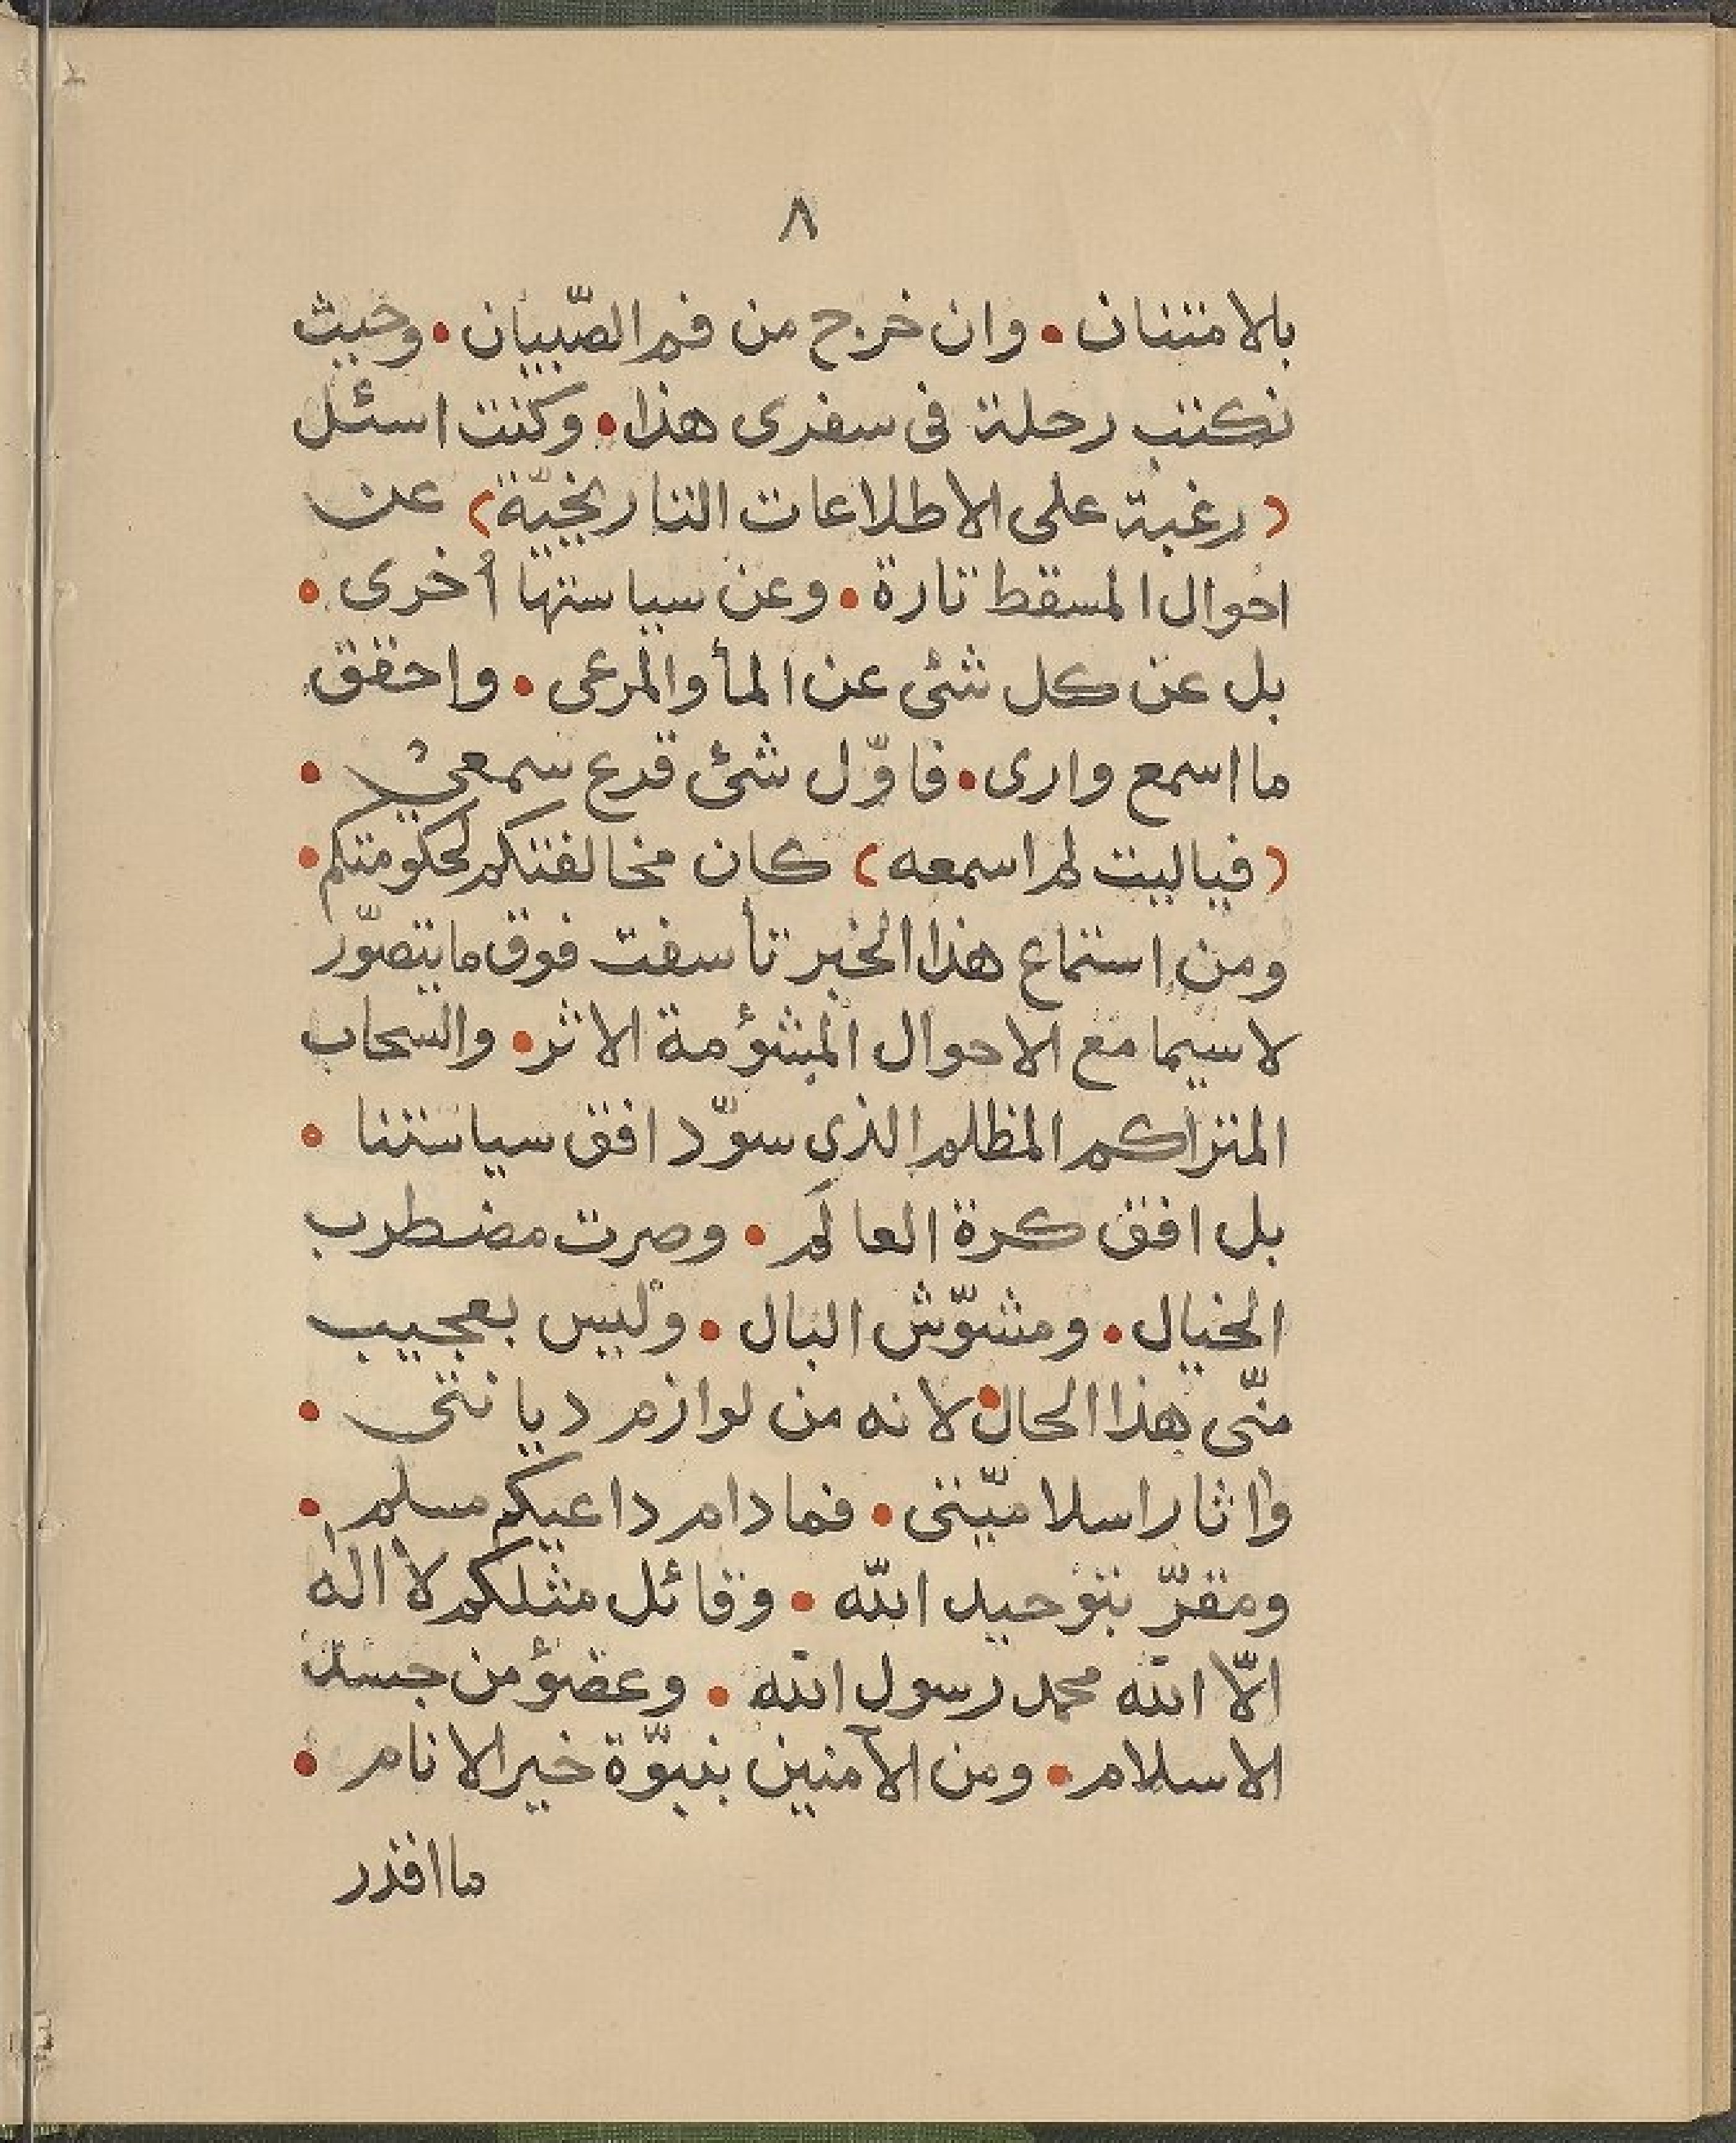 ٨
بالامتنان • وان خرج من فم الصّبيان • وحيث
نكتب رحلة فى سفرى هذا • وكنت اسئل
(رغبة على الاطلاعات التاريخيّة) عن
احوال المسقط تارة • وعن سياستها أخرى •
بل عن كل شئ عن المأ والمرعى • واحقق
ما اسمع وارى • فاوّل شئ قرع سمعى •
(فياليت لم اسمعه) كان مخالفتكم لحكومتكم •
ومن استماع هذا الخبر تأسفت فوق مايتصوّر
لاسيما مع الاحوال المشؤمة الاثر • والسحاب
المتراكم المظلم الذى سوّد افق سياستنا •
بل افق كرة العالَم • وصرت مضطرب
الخيال • ومشوّش البال • وليس بعجيب
منّى هذا الحال • لانه من لوازم ديانتى •
واثار اسلاميّتى • فمادام داعيكم مسلم •
ومقرّ بتوحيد الله • وقائل مثلكم لا اله
الّا الله محمد رسول الله • وعضؤ من جسد
الاسلام • ومن الآمنين بنبوّة خير الانام •
ما اقدر